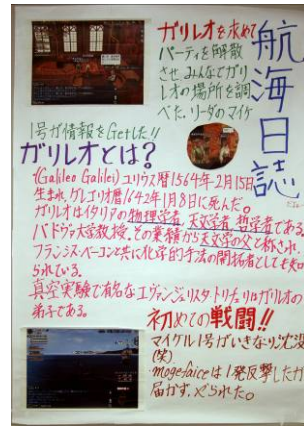 航海日誌
ガリレオを求めて
パーティを解散
させ、みんなでガリ
レオの場所を調
べた。リーダのマイケ
1号が情報をGetした!!
ガリレオとは?
(Galileo Galilei)ユリウス暦1564年2月15日
生まれ、グレゴリオ暦1642年1月8日に死んだ。
ガリレオはイタリアの物理学者、天文学者、哲学者である。
パドヴァ大学教授。その業績から天文学の父と称され、
フランシス・ベーコンと共に化学的手法の開拓者としても知
られている。
真空実験で有名なエヴァンジェリスタ・トリチェリはガリレオの
弟子である。
初めての戦闘!!
マイケル1号がいきなり沈没
(笑)
は1発反撃したが
届かず、やられた。